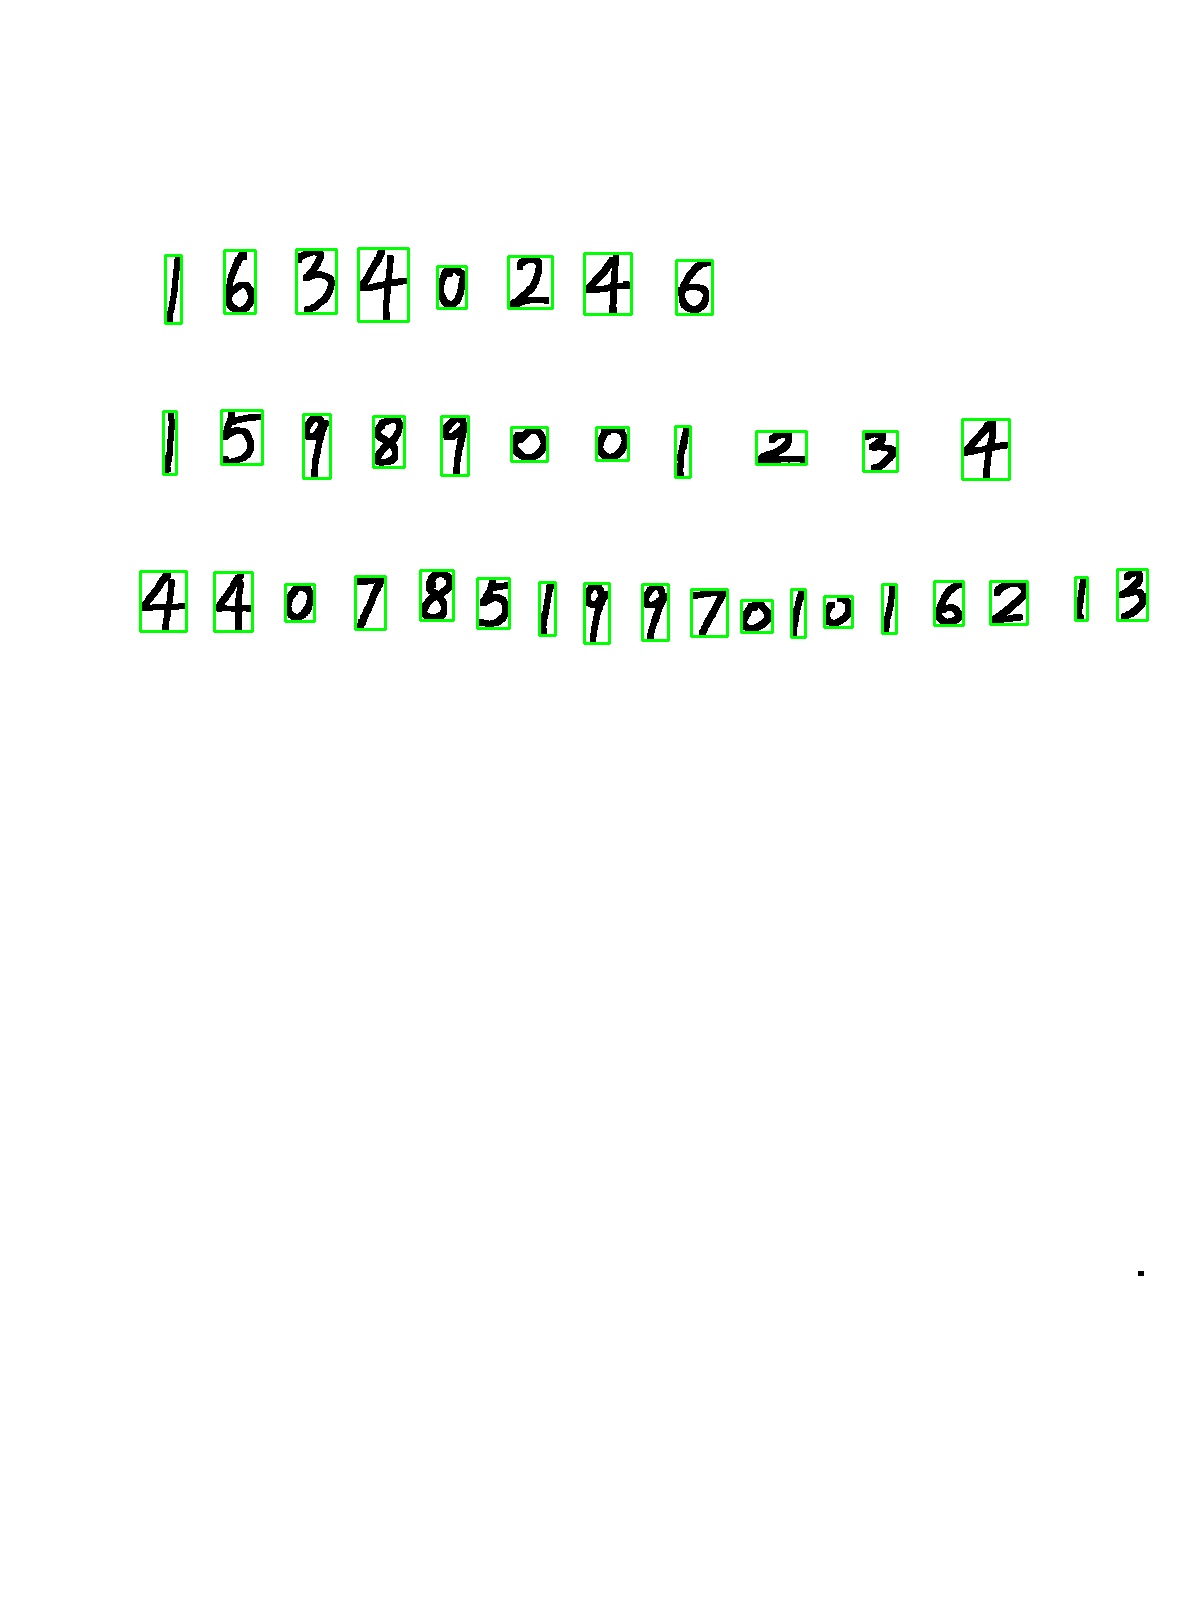 16340246
15989001234
440785199701016213